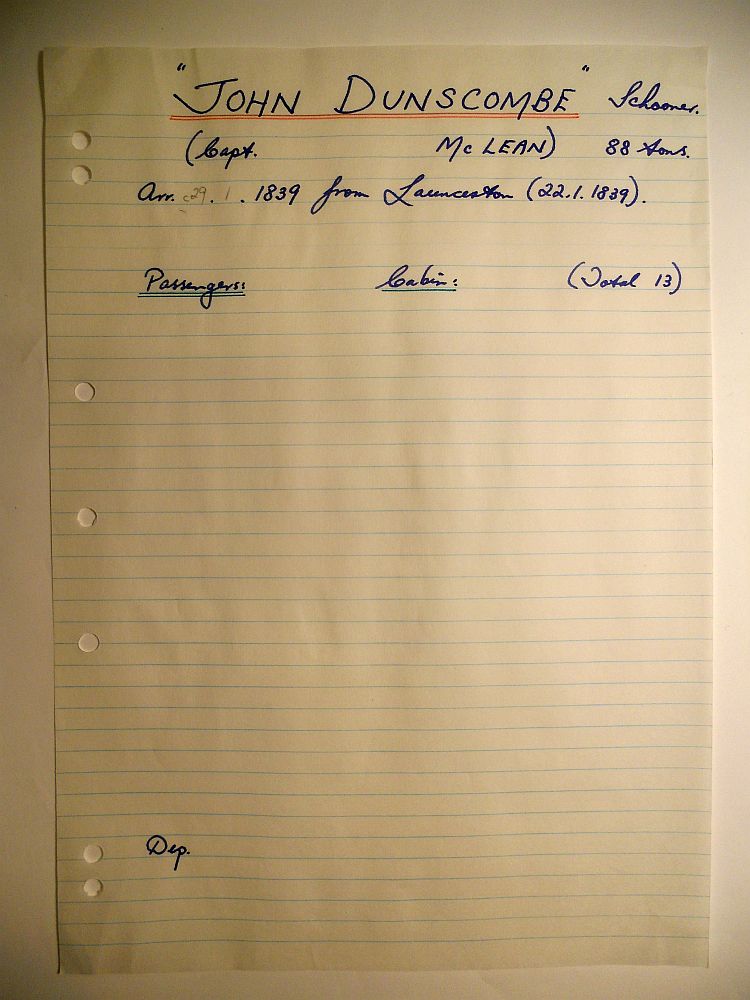 "JOHN DUNSCOMBE" Schooner.
(Capt. McLEAN) 88 tons.
Arr. c29. 1. 1839 from Launceston (22.1.1839).
Passengers: Cabin: (Total 13)
Dep.